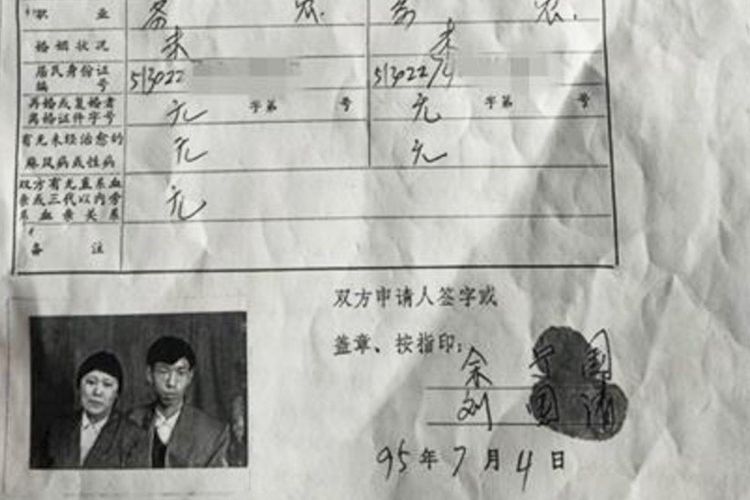 职 业 务 农 务 农.
婚姻状况 未 未
居民身份证 513022 513022
编 号
再婚或复婚者 无 字第 号 无 字第 号
离婚证件字号
有无未经治愈的 无 无
麻风病或性病
双方有无直系血 无
亲或三代以内旁
系血亲关系
备 注
双方申请人签字或
盖章、按指印:
余 国
刘 国 清
95年7月4日